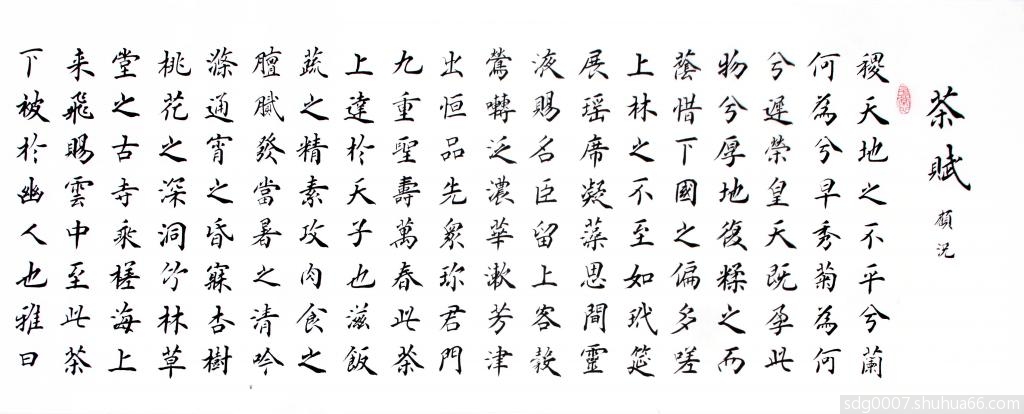 茶賦
顧況
稷天地之不平兮蘭
何為兮早秀菊為何
兮遲榮皇天既孕此
物兮厚地復糅之而
蔭惜下國之偏多嗟
上林之不至如玳筵
展瑶席凝藻思間靈
液賜名臣留上客穀
鶯囀泛濃華漱芳津
出恒品先衆珎君門
九重聖壽萬春此茶
上達於天子也滋飯
蔬之精素攻肉食之
膻膩發當暑之清吟
滌通宵之昏寐杏樹
桃花之深洞竹林草
堂之古寺乘槎海上
来飛賜雲中至此茶
下被於幽人也雅曰
sdg0007.shuhua66.com